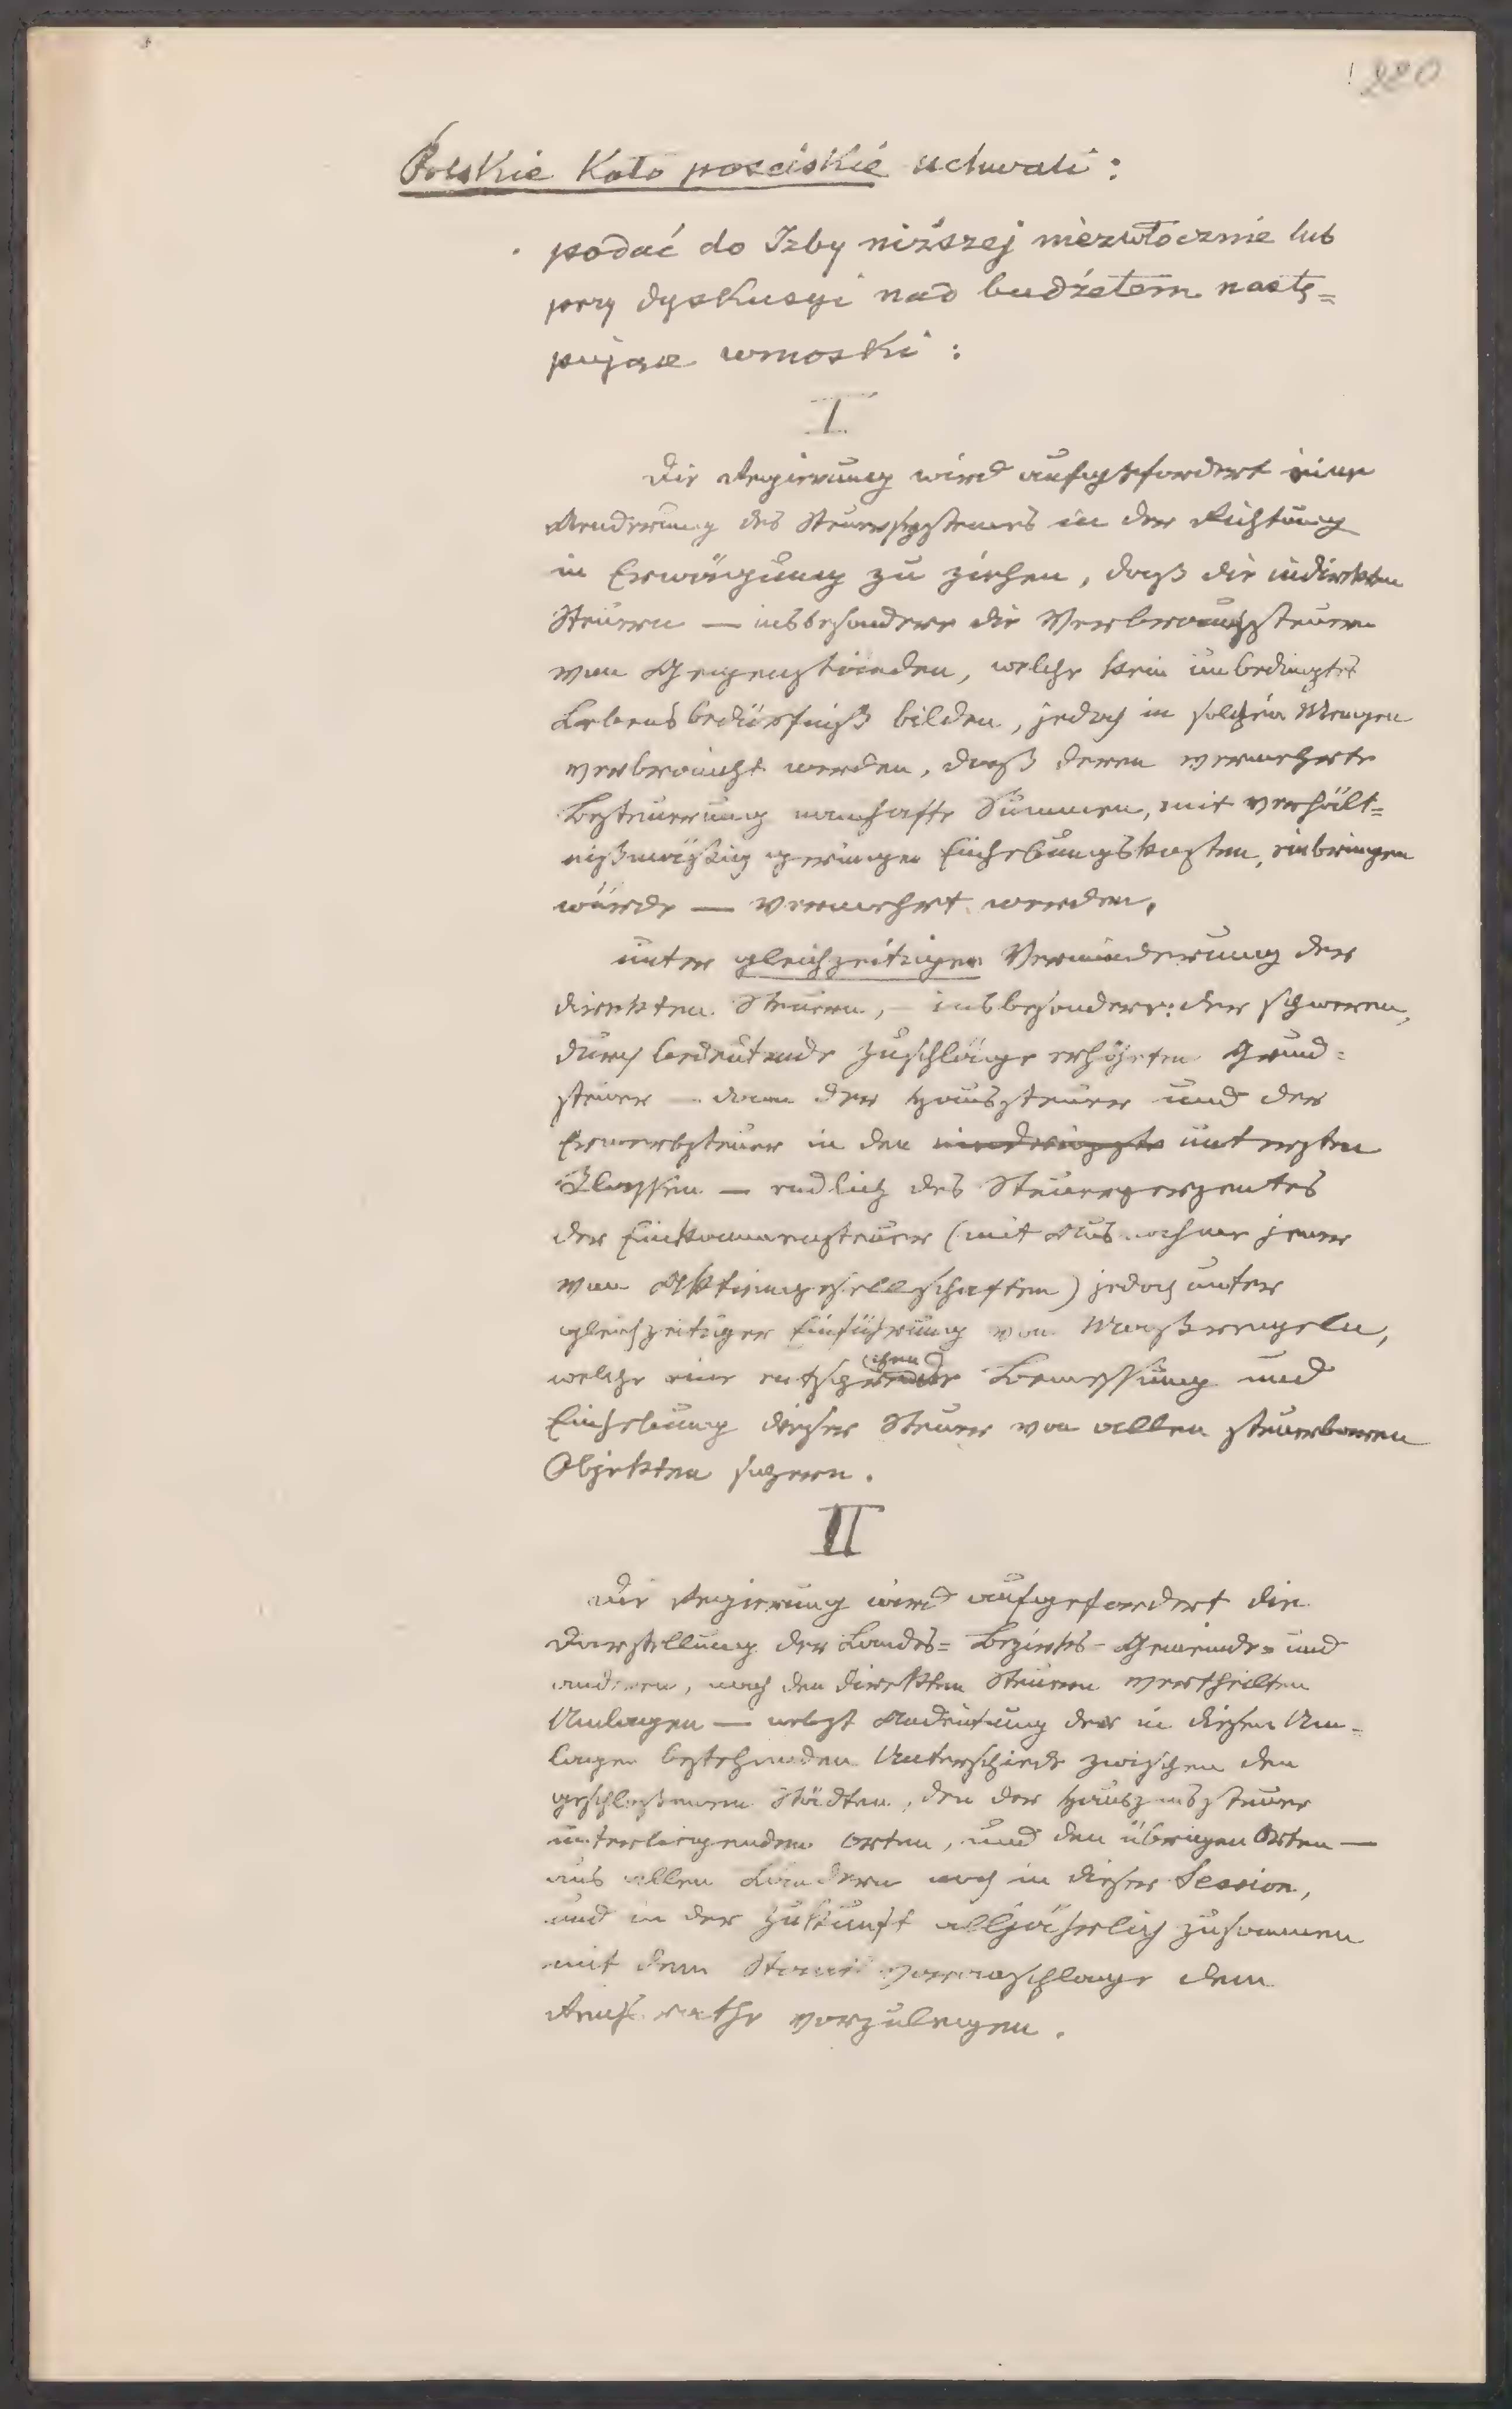 220
Polskie Koło poselskie uchwali:
podać do Izby niższej niezwłocznie lub
przy dyskusyi nad budżetem nastę=
pujące wnioski:
I
Die Regierung wird aufgefordert eine
Aenderung des Steuersystemes in der Richtung
in Erwägung zu ziehen, daß die indirekten
Steuern — insbesondere die Verbrauchssteuern
von Gegenständen, welche kein unbedingtes
Lebensbedürfniß bilden, jedoch in solchen Mengen
verbraucht werden, daß deren vermehrte
Besteuerung namhafte Summen, mit verhält=
nißmäßig geringen Einhebungskosten, einbringen
würde — vermehrt werden,
unter gleichzeitiger Verminderung der
direkten Steuern, — insbesondere: der schweren,
durch bedeutende Zuschläge erhöhten Grund=
steuer — dann der Haussteuer und der
Erwerbsteuer in den untersten
Klassen — endlich des Steuerperzentes
der Einkommensteuer (mit Ausnahme jener
von Aktiengesellschaften) jedoch unter
gleichzeitiger Einführung von Maßregeln,
welche eine Bemessung und
Einhebung dieser Steuer von allen steuerbaren
Objekten sichern.
II
Die Regierung wird aufgefordert die
Darstellung der Landes= Bezirks- Gemeinde= und
anderen, nach den direkten Steuern vertheilten
Umlagen — nebst Andeutung der in diesen Um=
lagen bestehenden Unterschiede zwischen den
geschloßenen Städten, den der Hauszinssteuer
unterliegenden Orten, und den übrigen Orten —
aus allen Ländern noch in dieser Session,
und in der Zukunft alljährlich zusammen
mit dem Staatsvoranschlage dem
Reichsrathe vorzulegen.